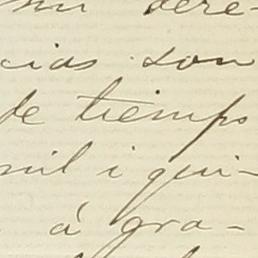 mi dere-
cias son
de tiempo
mil i qui-
á gra-